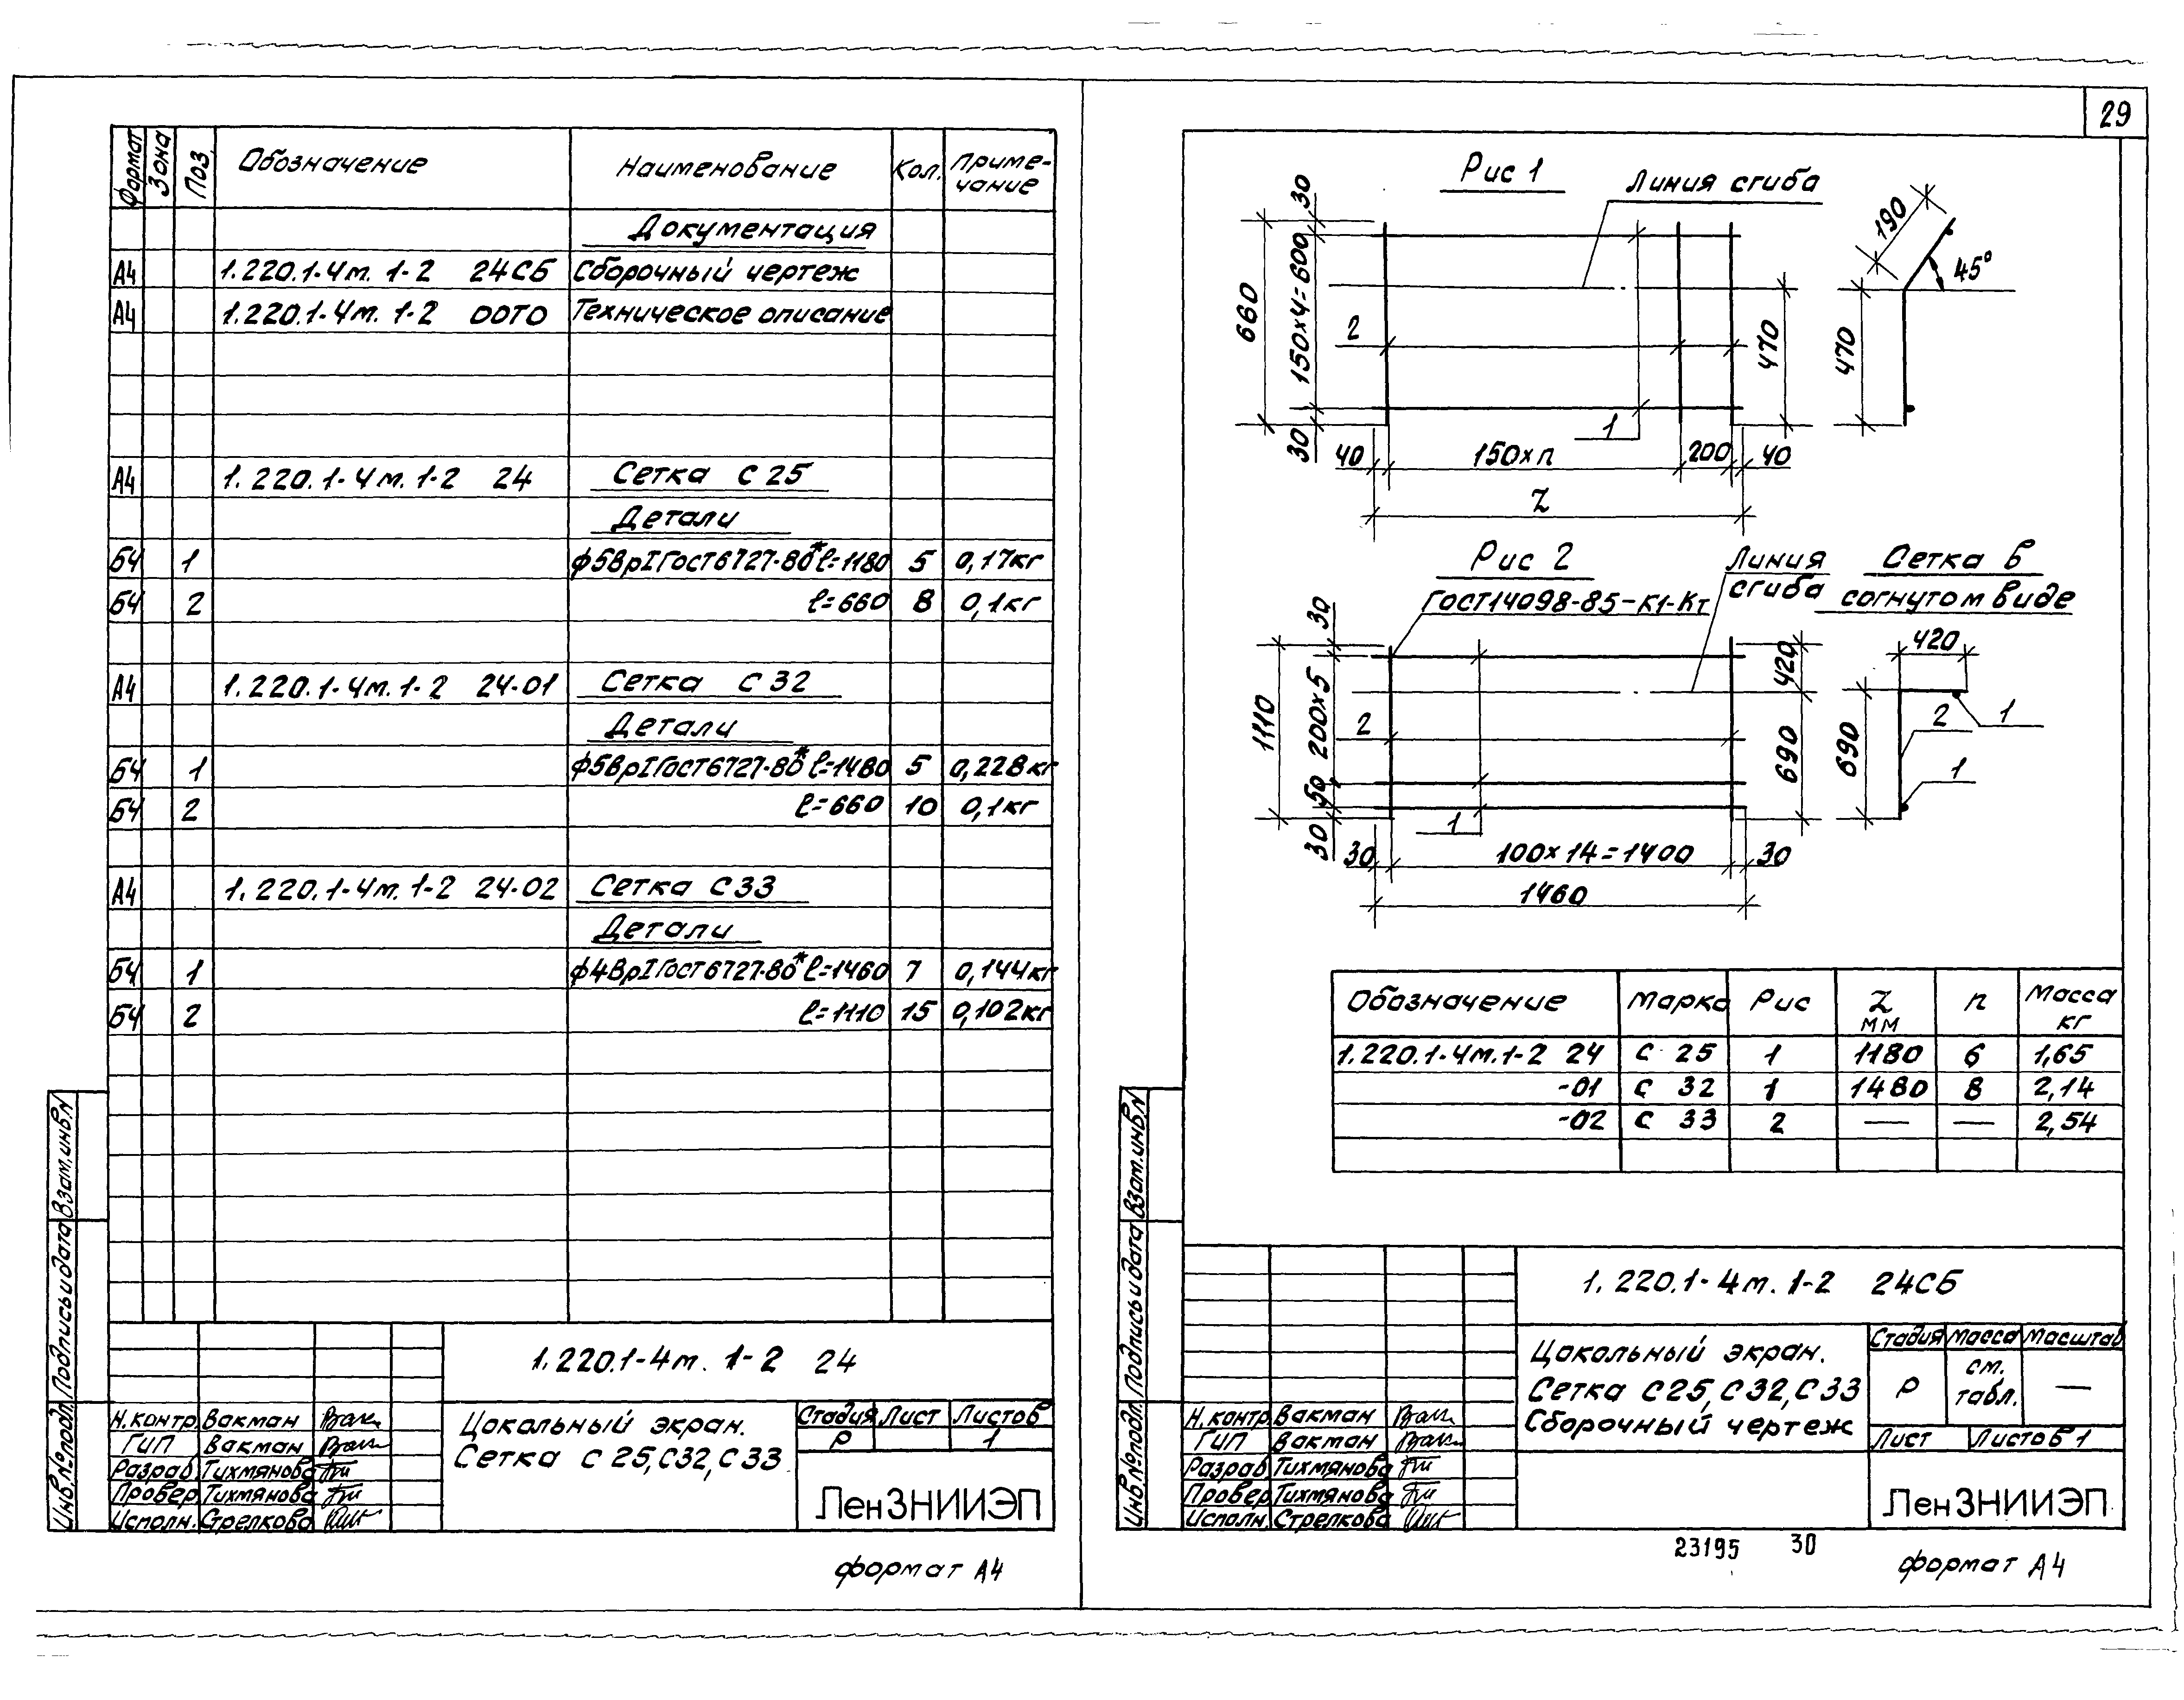 29
Формат Зона Поз. Обозначение Наименование Кол. Приме-
чание
Документация
А4 1.220.1-4м. 1-2 24СБ Сборочный чертеж
А4 1.220.1-4м. 1-2 00ТО Техническое описание
А4 1.220.1-4м.1-2 24 Сетка С 25
Детали
БЧ 1 ф5ВрI ГОСТ6727-80* ℓ=1180 5 0,17кг
БЧ 2 ℓ=660 8 0,1кг
А4 1.220.1-4м.1-2 24-01 Сетка С 32
Детали
БЧ 1 ф5ВрI ГОСТ6727-80* ℓ=1480 5 0,228кг
БЧ 2 ℓ=660 10 0,1кг
А4 1.220.1-4м.1-2 24-02 Сетка С33
Детали
БЧ 1 ф4ВрI ГОСТ6727-80* ℓ=1460 7 0,144кг
БЧ 2 ℓ=1110 15 0,102кг
Инв.№подл. Подпись и дата Взам.инв.N
1.220.1-4м. 1-2 24
Н.контр. Вакман
ГИП Вакман
Разраб. Тихмянова
Провер. Тихмянова
Исполн. Стрелкова
Цокольный экран.
Сетка С 25, С32, С 33
Стадия Лист Листов
Р 1
ЛенЗНИИЭП
формат А4
Рис 1
Линия сгиба
660
30
150х4=600
30
2
1
470
40 150хп 200 40
Z
190
45°
470
Рис 2
ГОСТ14098-85-К1-Кт
Линия
сгиба
Сетка в
согнутом виде
1110
30
200х5
50
30
2
1
420
690
30 100х14=1400 30
1460
420
690
2 1
1
Обозначение Марка Рис Z
мм п Масса
кг
1.220.1-4м.1-2 24 С 25 1 1180 6 1,65
-01 С 32 1 1480 8 2,14
-02 С 33 2 — — 2,54
Инв.№подл. Подпись и дата Взам.инв.N
1.220.1-4м. 1-2 24СБ
Н.контр. Вакман
ГИП Вакман
Разраб. Тихмянова
Провер. Тихмянова
Исполн. Стрелкова
Цокольный экран.
Сетка С25, С32, С33
Сборочный чертеж
Стадия Масса Масштаб
Р см.
табл. —
Лист Листов 1
ЛенЗНИИЭП
23195 30
формат А4